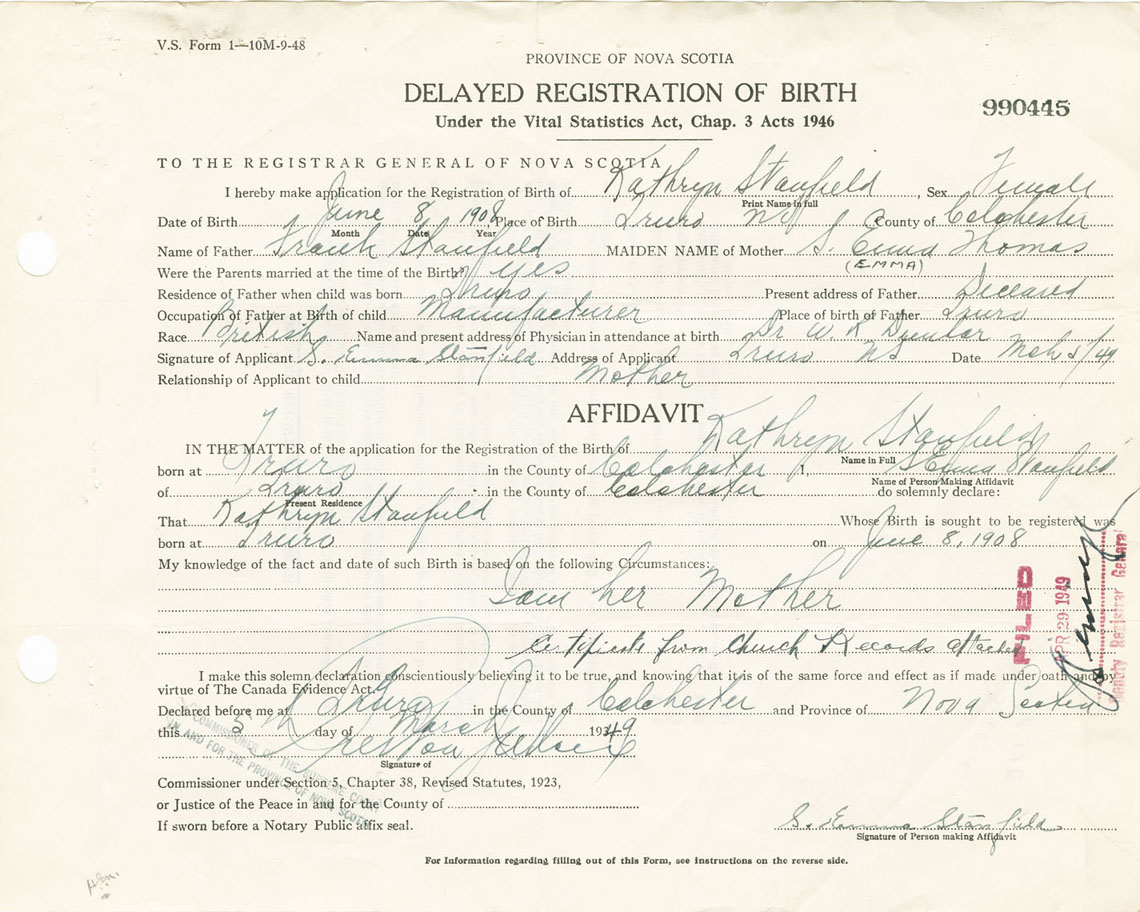 V.S. Form 1—10M-9-48
PROVINCE OF NOVA SCOTIA
DELAYED REGISTRATION OF BIRTH
990445
Under the Vital Statistics Act, Chap. 3 Acts 1946
TO THE REGISTRAR GENERAL OF NOVA SCOTIA
I hereby make application for the Registration of Birth of Kathryn Stanfield, Sex Female
Print Name in full
Date of Birth June 8 1908 Place of Birth Truro N S County of Colchester
Month Date Year
Name of Father Frank Stanfield MAIDEN NAME of Mother S. Emma Thomas
(EMMA)
Were the Parents married at the time of the Birth? Yes
Residence of Father when child was born Truro Present address of Father Deceased
Occupation of Father at Birth of child Manufacturer Place of birth of Father Truro
Race British Name and present address of Physician in attendance at birth Dr W.
Signature of Applicant S. Emma Stanfield Address of Applicant Truro NS Date Mch 5/49
Relationship of Applicant to child Mother
AFFIDAVIT
IN THE MATTER of the application for the Registration of the Birth of Kathryn Stanfield
Name in Full
born at Truro in the County of Colchester I, S Emma Stanfield
Name of Person Making Affidavit
of Truro in the County of Colchester do solemnly declare:
Present Residence
That Kathryn Stanfield Whose Birth is sought to be registered was
born at Truro on June 8, 1908
My knowledge of the fact and date of such Birth is based on the following Circumstances:
I am her Mother
Certificate from Church Records attached
FILED
APR 29 1949
Deputy Registrar General
I make this solemn declaration conscientiously believing it to be true, and knowing that it is of the same force and effect as if made under oath and by
virtue of The Canada Evidence Act.
Declared before me at Truro in the County of Colchester and Province of Nova Scotia
this 5th day of March 1949
A COMMISSIONER OF THE SUPREME COURT
IN AND FOR THE PROVINCE OF NOVA SCOTIA
Signature of
Commissioner under Section 5, Chapter 38, Revised Statutes, 1923,
or Justice of the Peace in and for the County of
If sworn before a Notary Public affix seal.
S. Emma Stanfield
Signature of Person making Affidavit
For Information regarding filling out of this Form, see instructions on the reverse side.